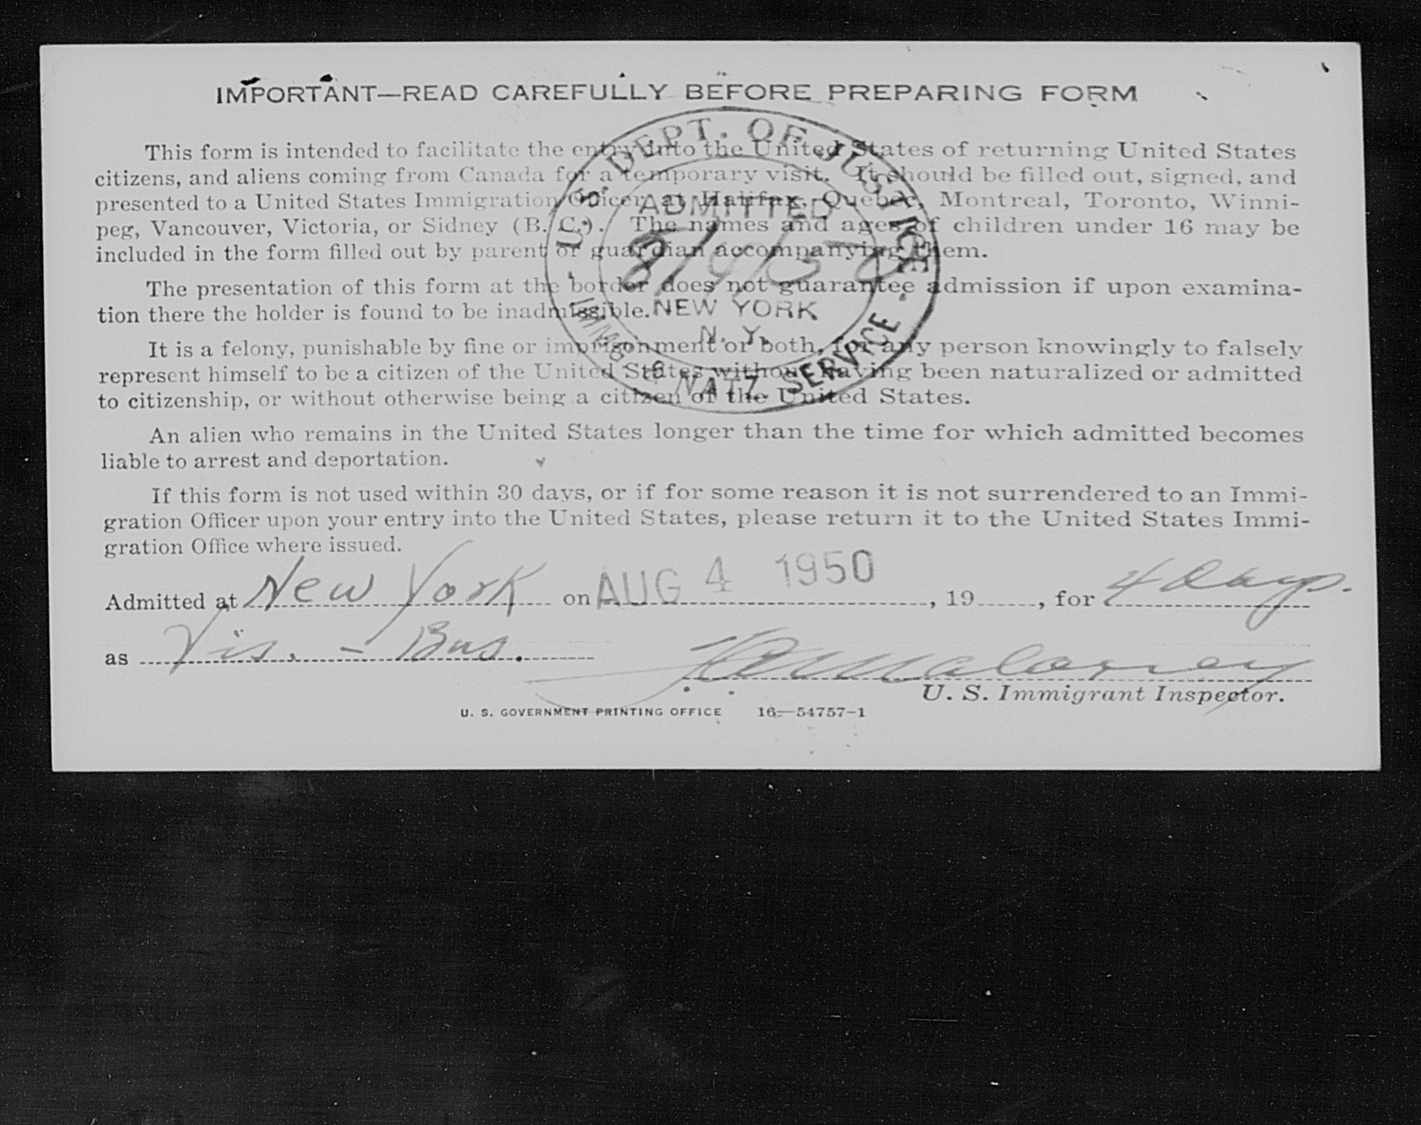 IMPORTANT—READ CAREFULLY BEFORE PREPARING FORM
This form is intended to facilitate the entry into the United States of returning United States
citizens, and aliens coming from Canada for a temporary visit. It should be filled out, signed, and
presented to a United States Immigration Officer at Halifax, Quebec, Montreal, Toronto, Winni-
peg, Vancouver, Victoria, or Sidney (B. C.). The names and ages of children under 16 may be
included in the form filled out by parent or guardian accompanying them.
The presentation of this form at the border does not guarantee admission if upon examina-
tion there the holder is found to be inadmissible.
It is a felony, punishable by fine or imprisonment or both, for any person knowingly to falsely
represent himself to be a citizen of the United States without having been naturalized or admitted
to citizenship, or without otherwise being a citizen of the United States.
An alien who remains in the United States longer than the time for which admitted becomes
liable to arrest and deportation.
If this form is not used within 30 days, or if for some reason it is not surrendered to an Immi-
gration Officer upon your entry into the United States, please return it to the United States Immi-
gration Office where issued.
U. S. DEPT. OF JUSTICE
ADMITTED
NEW YORK
N. Y.
IMMIG. & NATZ. SERVICE
Admitted at New York on AUG 4 1950, 19......, for 4 Days.
as Vis. - Bus.
U. S. Immigrant Inspector.
U. S. GOVERNMENT PRINTING OFFICE 16—54757-1